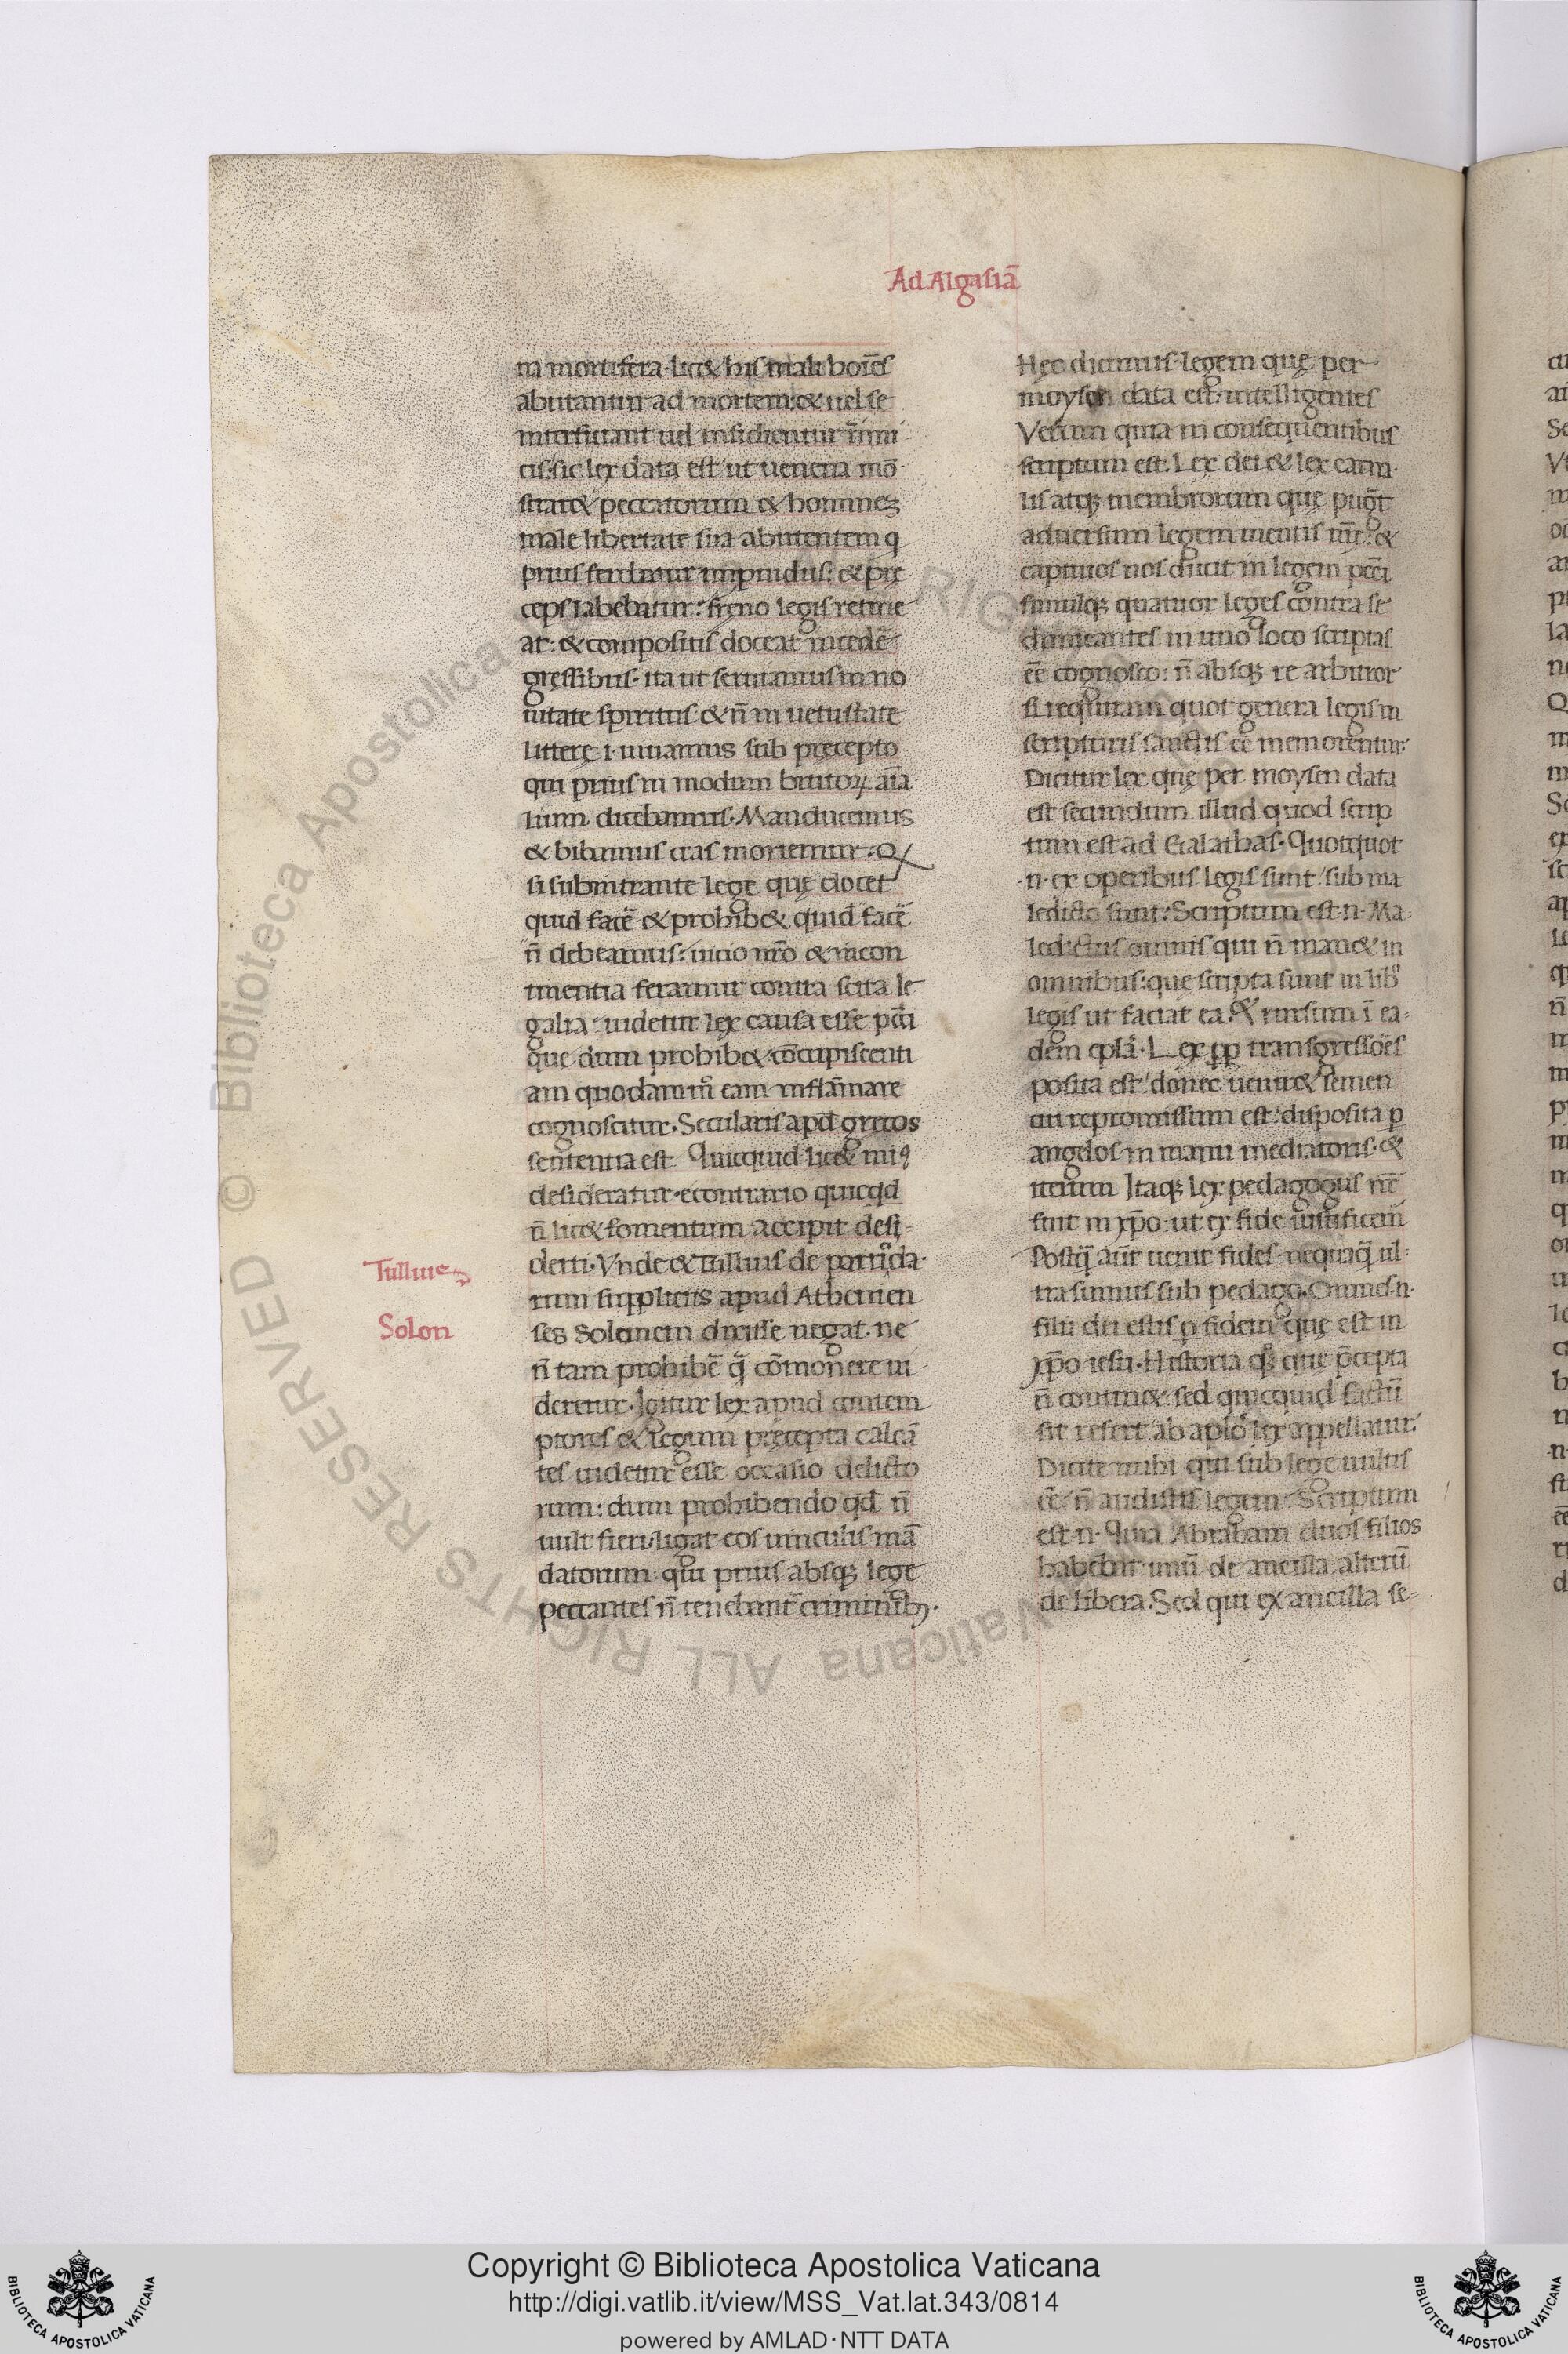 Ad Algasiā
m mortifera·lic& his mali hoīes
abutantur ad mortem:& uel se
interficiant uel insidientur īnimi
cis:sic lex data est ut uenena mō
strar& peccatorum & homines
male libertate sua abutentem q
prius ferebatur impuidus: & prę
ceps labebatur: fręno legis retine
at: & compositis doceat incedē
gręssibus· ita ut seruiamus in no
uitate spiritus & n̄ in uetustate
litterę·i·uiuamus sub pręcepto
qui prius in modum brutoꝝ aīa
lium dicebamus·Manducemus
& bibamus cras moriemur·Q
si subintrante lege quę docet
quid facē & prohib& quid facē
n̄ debeamus: uicio nr̄o & incon
tinentia feramur contra scita le
galia: uidetur lex causa esse pcc̄i
que dum prohib& cōcupiscenti
am quodammō eam inflāmare
cognoscitur·Secularis apd gręcos
sententia est Quicquid lic& minꝰ
desideratur·econtrario quicqd
n̄ lic& fomentum accipit desi-
derii·Vnde & Tullius de parricida·
rum suppliciis apud Athenien
ses Solonem dixisse negat·ne
n̄ tam prohibē q̄ cōmonere ui
deretur·Igitur lex apud contem
ptores & legum pręcepta calcā
tes uidetur esse occasio delicto
rum: dum prohibendo qd n̄
uult fieri·ligat eos uinculis mā
datorum·qui prius absqꝫ lege
peccantes n̄ tenebant criminibꝫ·
Tullius
Solon
Hęc diximus·legem quę per
moysen data est·intelligentes
Verum quia in consequentibus
scriptum est·Lex dei & lex carna
lis atqꝫ membrorum quę pugt̄
aduersum legem mentis nr̄ę:&
captiuos nos ducit in legem pcc̄i
simulqꝫ quatuor leges contra se
dimicantes in uno loco scriptas
ēe cognosco: n̄ absqꝫ re arbitror
si requiram quot genera legis in
scripturis sanctis ēe memorentur·
Dicitur lex quę per moysen data
est secundum illud quod scrip
tum est ad Galathas·Quotquot
·n·ex operibus legis sunt sub ma
ledicto sunt:Scriptum est·n·Ma-
ledictus omnis qui n̄ man& in
omnibus:quę scripta sunt in lib
legis ut faciat ea·& rursum ī ea-
dem eplā·Lex pp transgressiōes
posita est donec uenir& semen
cui repromissum est:disposita p
angelos in manu mediatoris·&
iterum Itaqꝫ lex pedagogus nr̄
fuit in xp̄o·ut ex fide iustificem̄
Postq̄ aūt uenit fides·nequaq̄ ul-
tra sumus sub pedago·Omnes·n·
filii dei estis p fidem quę est in
xp̄o iesu·Historia qqꝫ que p̄cepta
n̄ contin& sed quicquid factū
sit refert ab aplo lex appellatur·
Dicite mihi qui sub lege uultis
ēe: n̄ audistis legem Scriptum
est·n·Quia Abraham duos filios
habebat·unū de ancilla·alterū
de libera·Sed qui ex ancilla se-
© Biblioteca Apostolica Vaticana ALL RIGHTS RESERVED
Copyright © Biblioteca Apostolica Vaticana
http://digi.vatlib.it/view/MSS_Vat.lat.343/0814
powered by AMLAD·NTT DATA
BIBLIOTECA APOSTOLICA VATICANA
BIBLIOTECA APOSTOLICA VATICANA